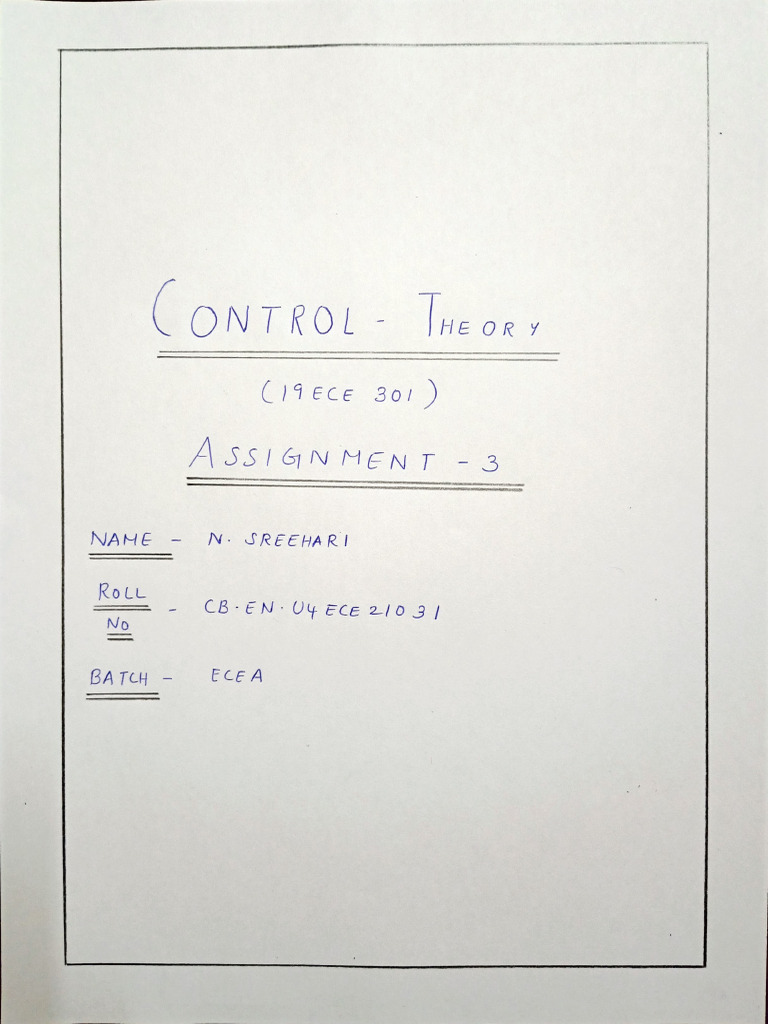 CONTROL - THEORY
(19ECE 301)
ASSIGNMENT - 3
NAME - N. SREEHARI
ROLL NO - CB.EN.U4ECE21031
BATCH - ECEA